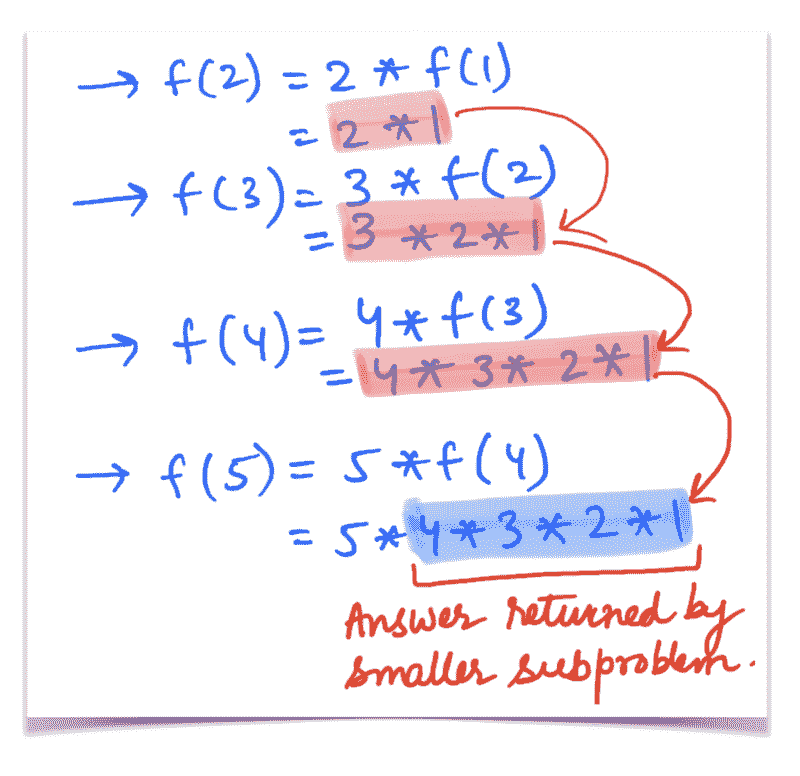 → f(2) = 2 * f(1)
= 2 * 1
→ f(3) = 3 * f(2)
= 3 * 2 * 1
→ f(4) = 4 * f(3)
= 4 * 3 * 2 * 1
→ f(5) = 5 * f(4)
= 5 * 4 * 3 * 2 * 1
Answer returned by
smaller subproblem.